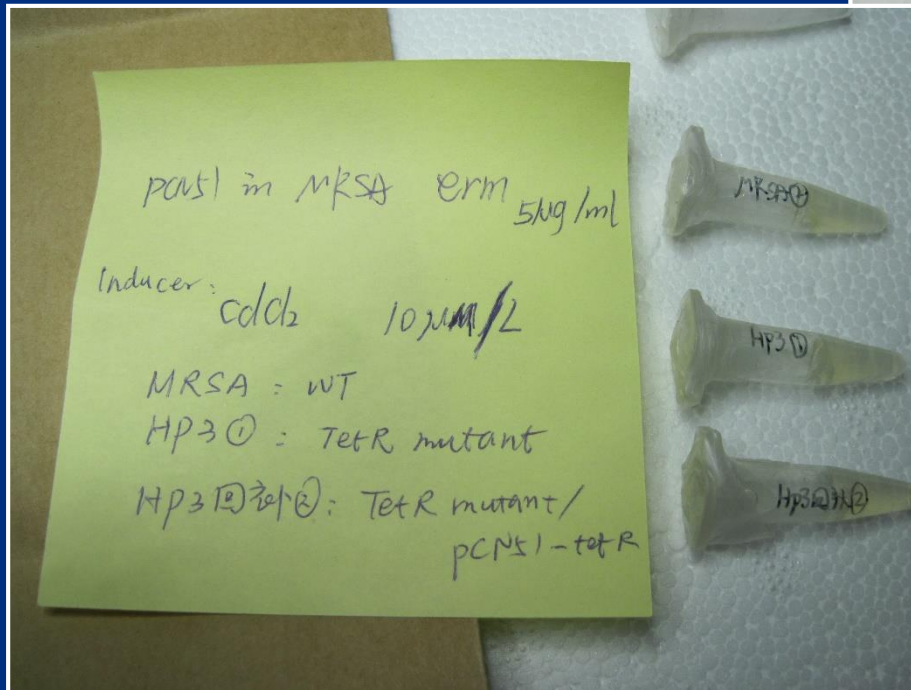 pCN51 in MRSA erm 5μg/ml
Inducer:
CdCl₂ 10μM/L
MRSA : WT
HP3① : TetR mutant
HP3回补②: TetR mutant/
pCN51-tetR
MRSA
HP3①
Hp3回补②